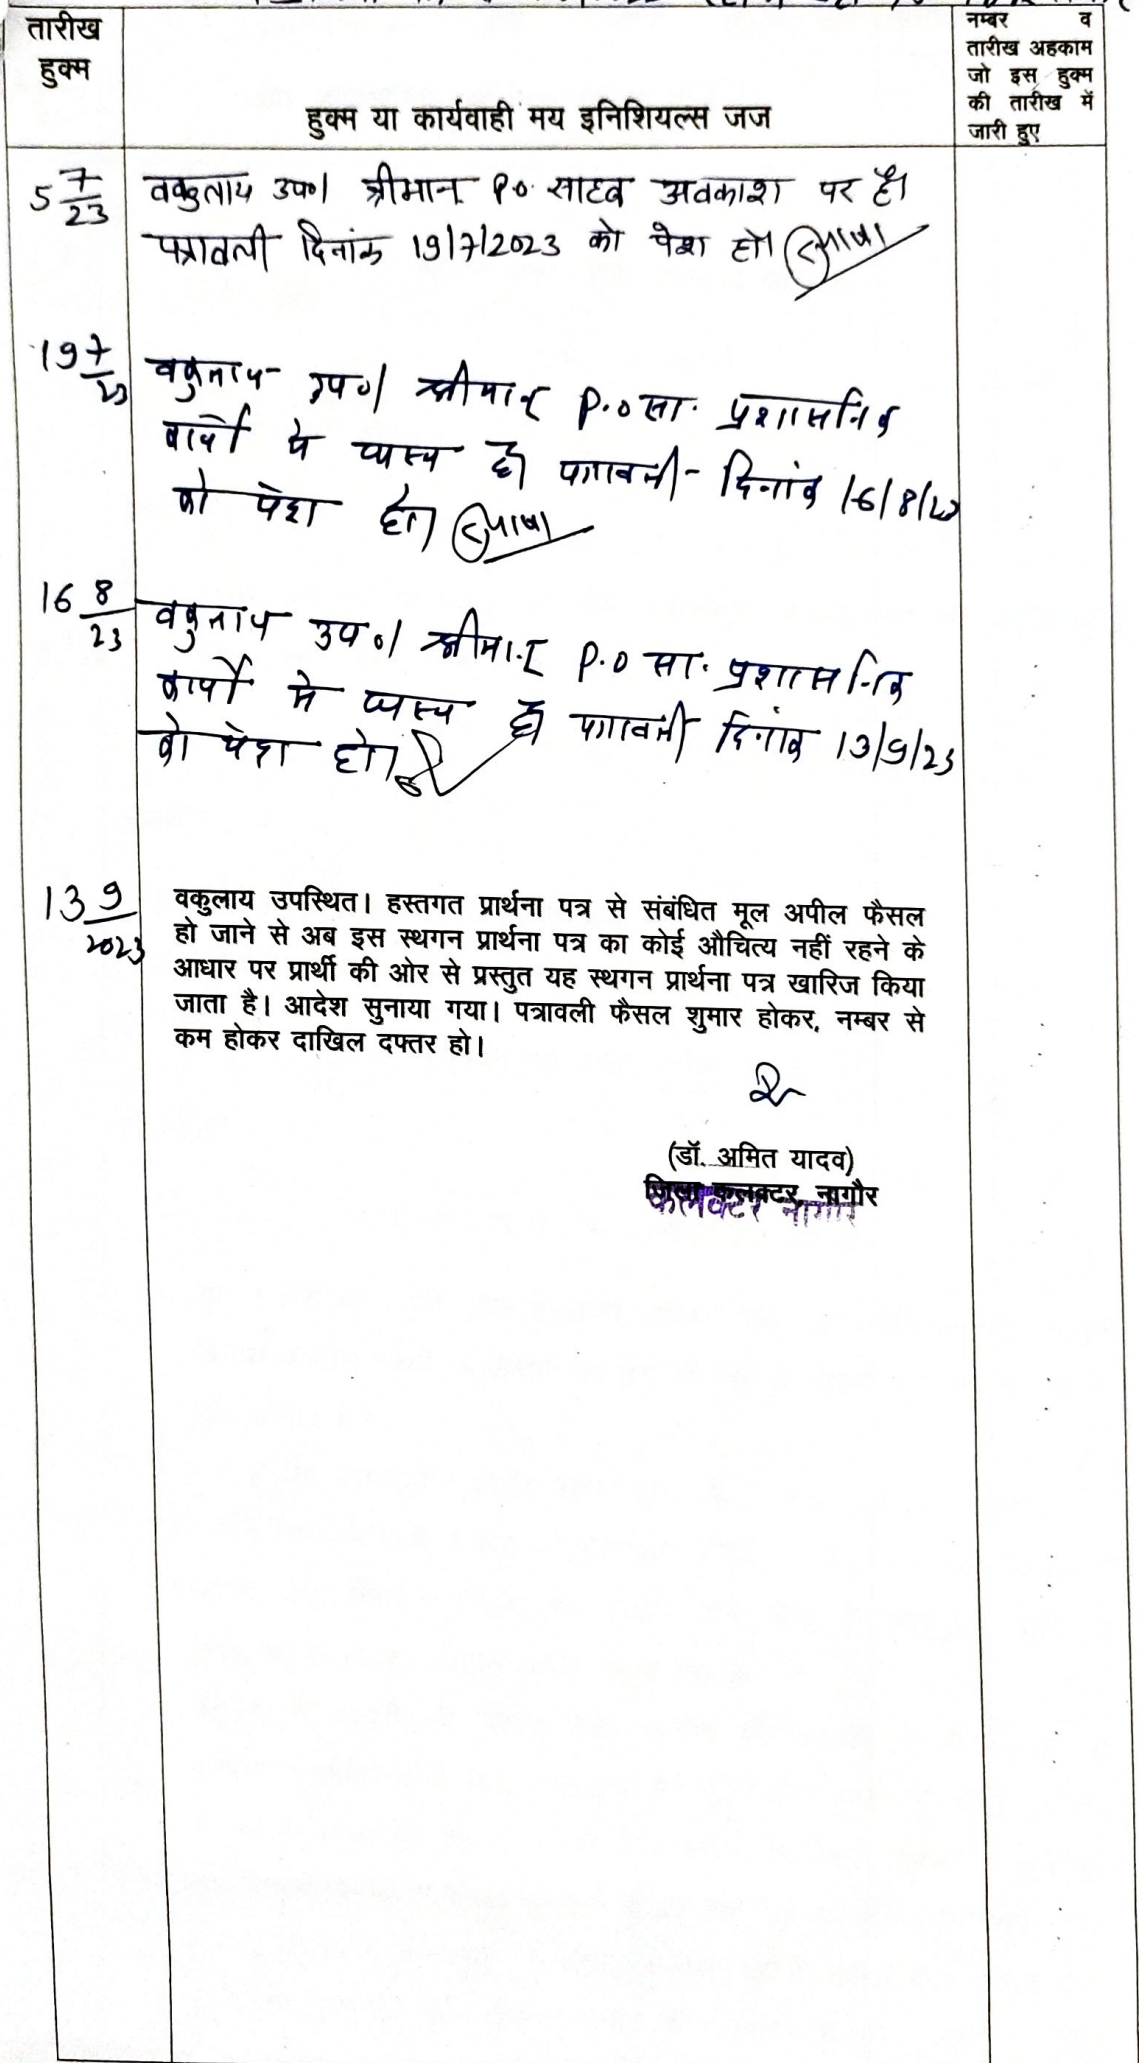 तारीख
हुक्म
हुक्म या कार्यवाही मय इनिशियल्स जज
नम्बर व
तारीख अहकाम
जो इस हुक्म
की तारीख में
जारी हुए
5 7/23 वकुलाय उप०। श्रीमान् P.O. साहब अवकाश पर है।
पत्रावली दिनांक 19/7/2023 को पेश हो।
19 7/23 वकुलाय उप०। श्रीमान् P.O सा. प्रशासनिक
कार्यो मे व्यस्त है। पत्रावली दिनांक 16/8/23
को पेश हो।
16 8/23 वकुलाय उप०। श्रीमान् P.O सा. प्रशासनिक
कार्यो मे व्यस्त है। पत्रावली दिनांक 13/9/23
को पेश हो।
13 9/2023 वकुलाय उपस्थित। हस्तगत प्रार्थना पत्र से संबंधित मूल अपील फैसल
हो जाने से अब इस स्थगन प्रार्थना पत्र का कोई औचित्य नहीं रहने के
आधार पर प्रार्थी की ओर से प्रस्तुत यह स्थगन प्रार्थना पत्र खारिज किया
जाता है। आदेश सुनाया गया। पत्रावली फैसल शुमार होकर, नम्बर से
कम होकर दाखिल दफ्तर हो।
(डॉ. अमित यादव)
जिला कलक्टर, नागौर
कलक्टर नागौर